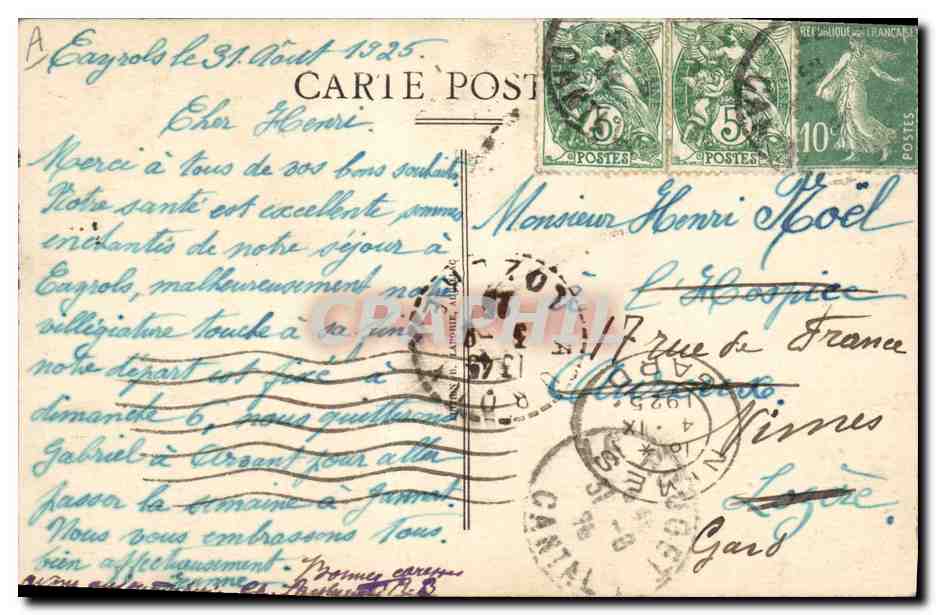 A
Cayrols le 31 Août 1925.
CARTE POST
Cher Henri.
Merci à tous de vos bons souhaits.
Notre santé est excellente sommes
enchantés de notre séjour à
Cayrols, malheureusement notre
villégiature touche à sa fin
notre départ est fixé à
dimanche 6, nous quitterons
Gabriel à Arvant pour aller
passer la semaine à Gannat.
Nous vous embrassons tous
bien affectueusement.
Jeanne
Bonnes caresses
5c
POSTES
5c
POSTES
REPUBLIQUE FRANÇAISE
10c
POSTES
CANTAL
Monsieur Henri Noël
à l'Hospice
17 rue de France
Nimes
Lozère
Gard
NIMES
GARD
18
4 IX
1925
CANTAL
CPAPHIL